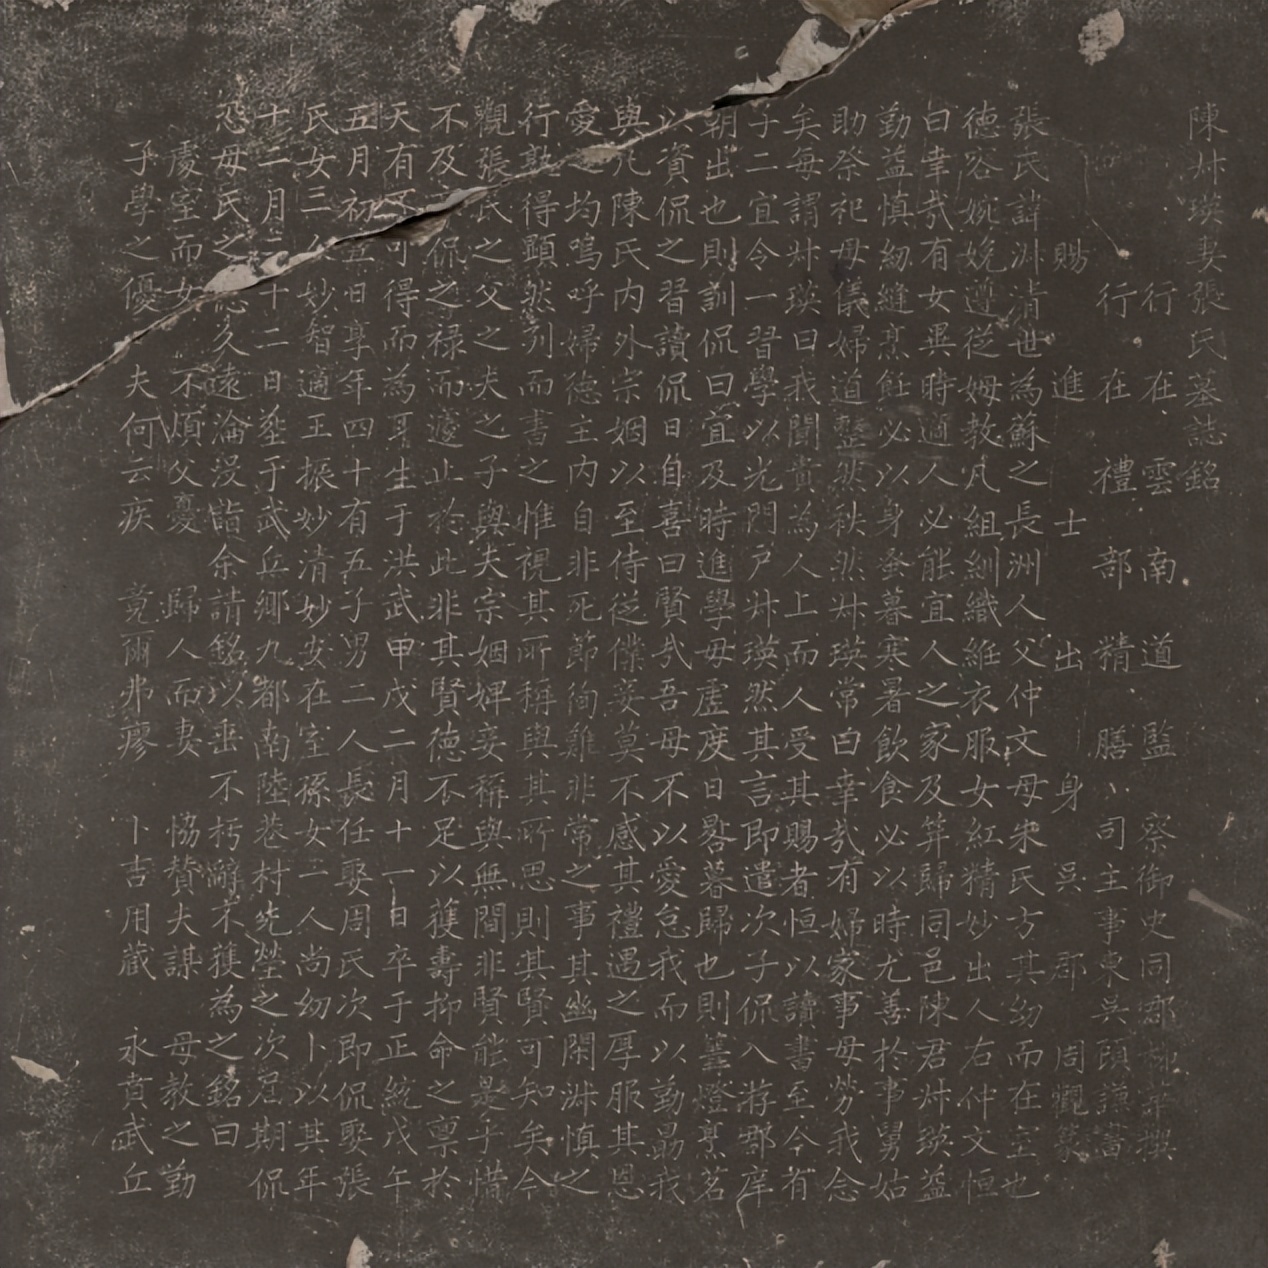 陳叔瑛妻張氏墓誌銘
行在雲南道監察御史同郡 華撰
行在禮部精膳司主事東吳項謙書
賜進士出身吳郡周觀篆
張氏諱淑清世為蘇之長洲人父仲文母朱氏方其幼而在室也
德容婉娩遵從姆教凡組紃織維衣服女紅精妙出人右仲文恒
曰幸哉有女異時適人必能宜人之家及笄歸同邑陳君叔瑛益
勤益慎紉縫烹飪必以身蚤暮寒暑飲食必以時尤善於事舅姑
助祭祀母儀婦道整然秩然叔瑛常曰幸哉有婦家事毋勞我念
矣每謂叔瑛曰我聞貴為人上而人受其賜者恒以讀書至今有
子二宜令一習學以光門戶叔瑛然其言即遣次子侃入游郡庠
朝出也則訓侃曰宜及時進學毋虛度日晷暮歸也則篝燈烹茗
以資侃之習讀侃日自喜曰賢哉吾母不以愛怠我而以勤勗我
與凡陳氏內外宗姻以至侍從僕妾莫不感其禮遇之厚服其恩
愛之均嗚呼婦德主內自非死節徇難非常之事其幽閑淑慎之
行孰得顯然列而書之惟視其所稱與其所思則其賢可知矣今
觀張氏之父之夫之子與夫宗姻婢妾稱與無間非賢能是乎惜
不及 侃之祿而遽止於此非其賢德不足以獲壽抑命之稟於
天有不可得而為耳生于洪武甲戌二月十一日卒于正統戊午
五月初五日享年四十有五子男二人長任娶周氏次即侃娶張
氏女三人妙智適王振妙清妙安在室孫女二人尚幼卜以其年
十二月二十二日葬于武丘鄉九都南陸巷村先塋之次忌期侃
恐母氏之德久遠淪沒詣余請銘以垂不朽辭不獲為之銘曰
處室而女 不煩父憂 歸人而妻 恊贊夫謀 母教之勤
子學之優 夫何云疾 竟爾弗瘳 卜吉用藏 永賁武丘